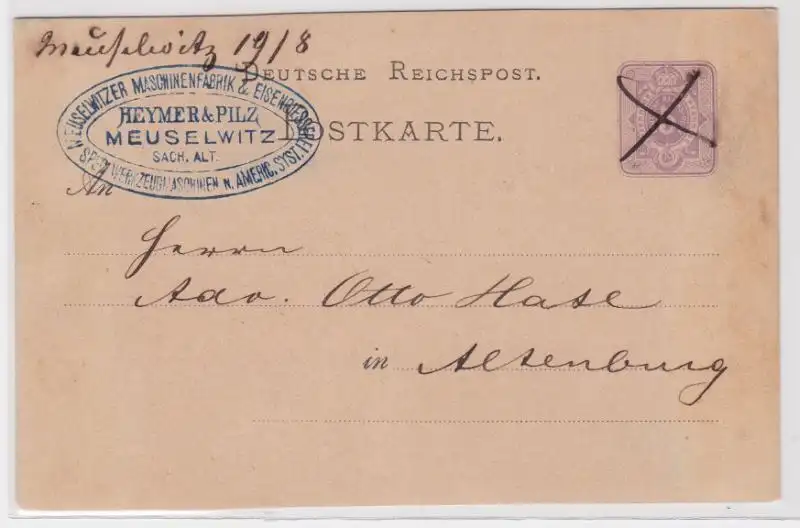 Meuselwitz 19/8
DEUTSCHE REICHSPOST.
POSTKARTE.
MEUSELWITZER MASCHINENFABRIK & EISENGIESSEREI
HEYMER & PILZ
MEUSELWITZ
SACH. ALT.
SPEC. WERKZEUGMASCHINEN N. AMERIC. SYST.
An
Herrn
Adv. Otto Hase
in Altenburg